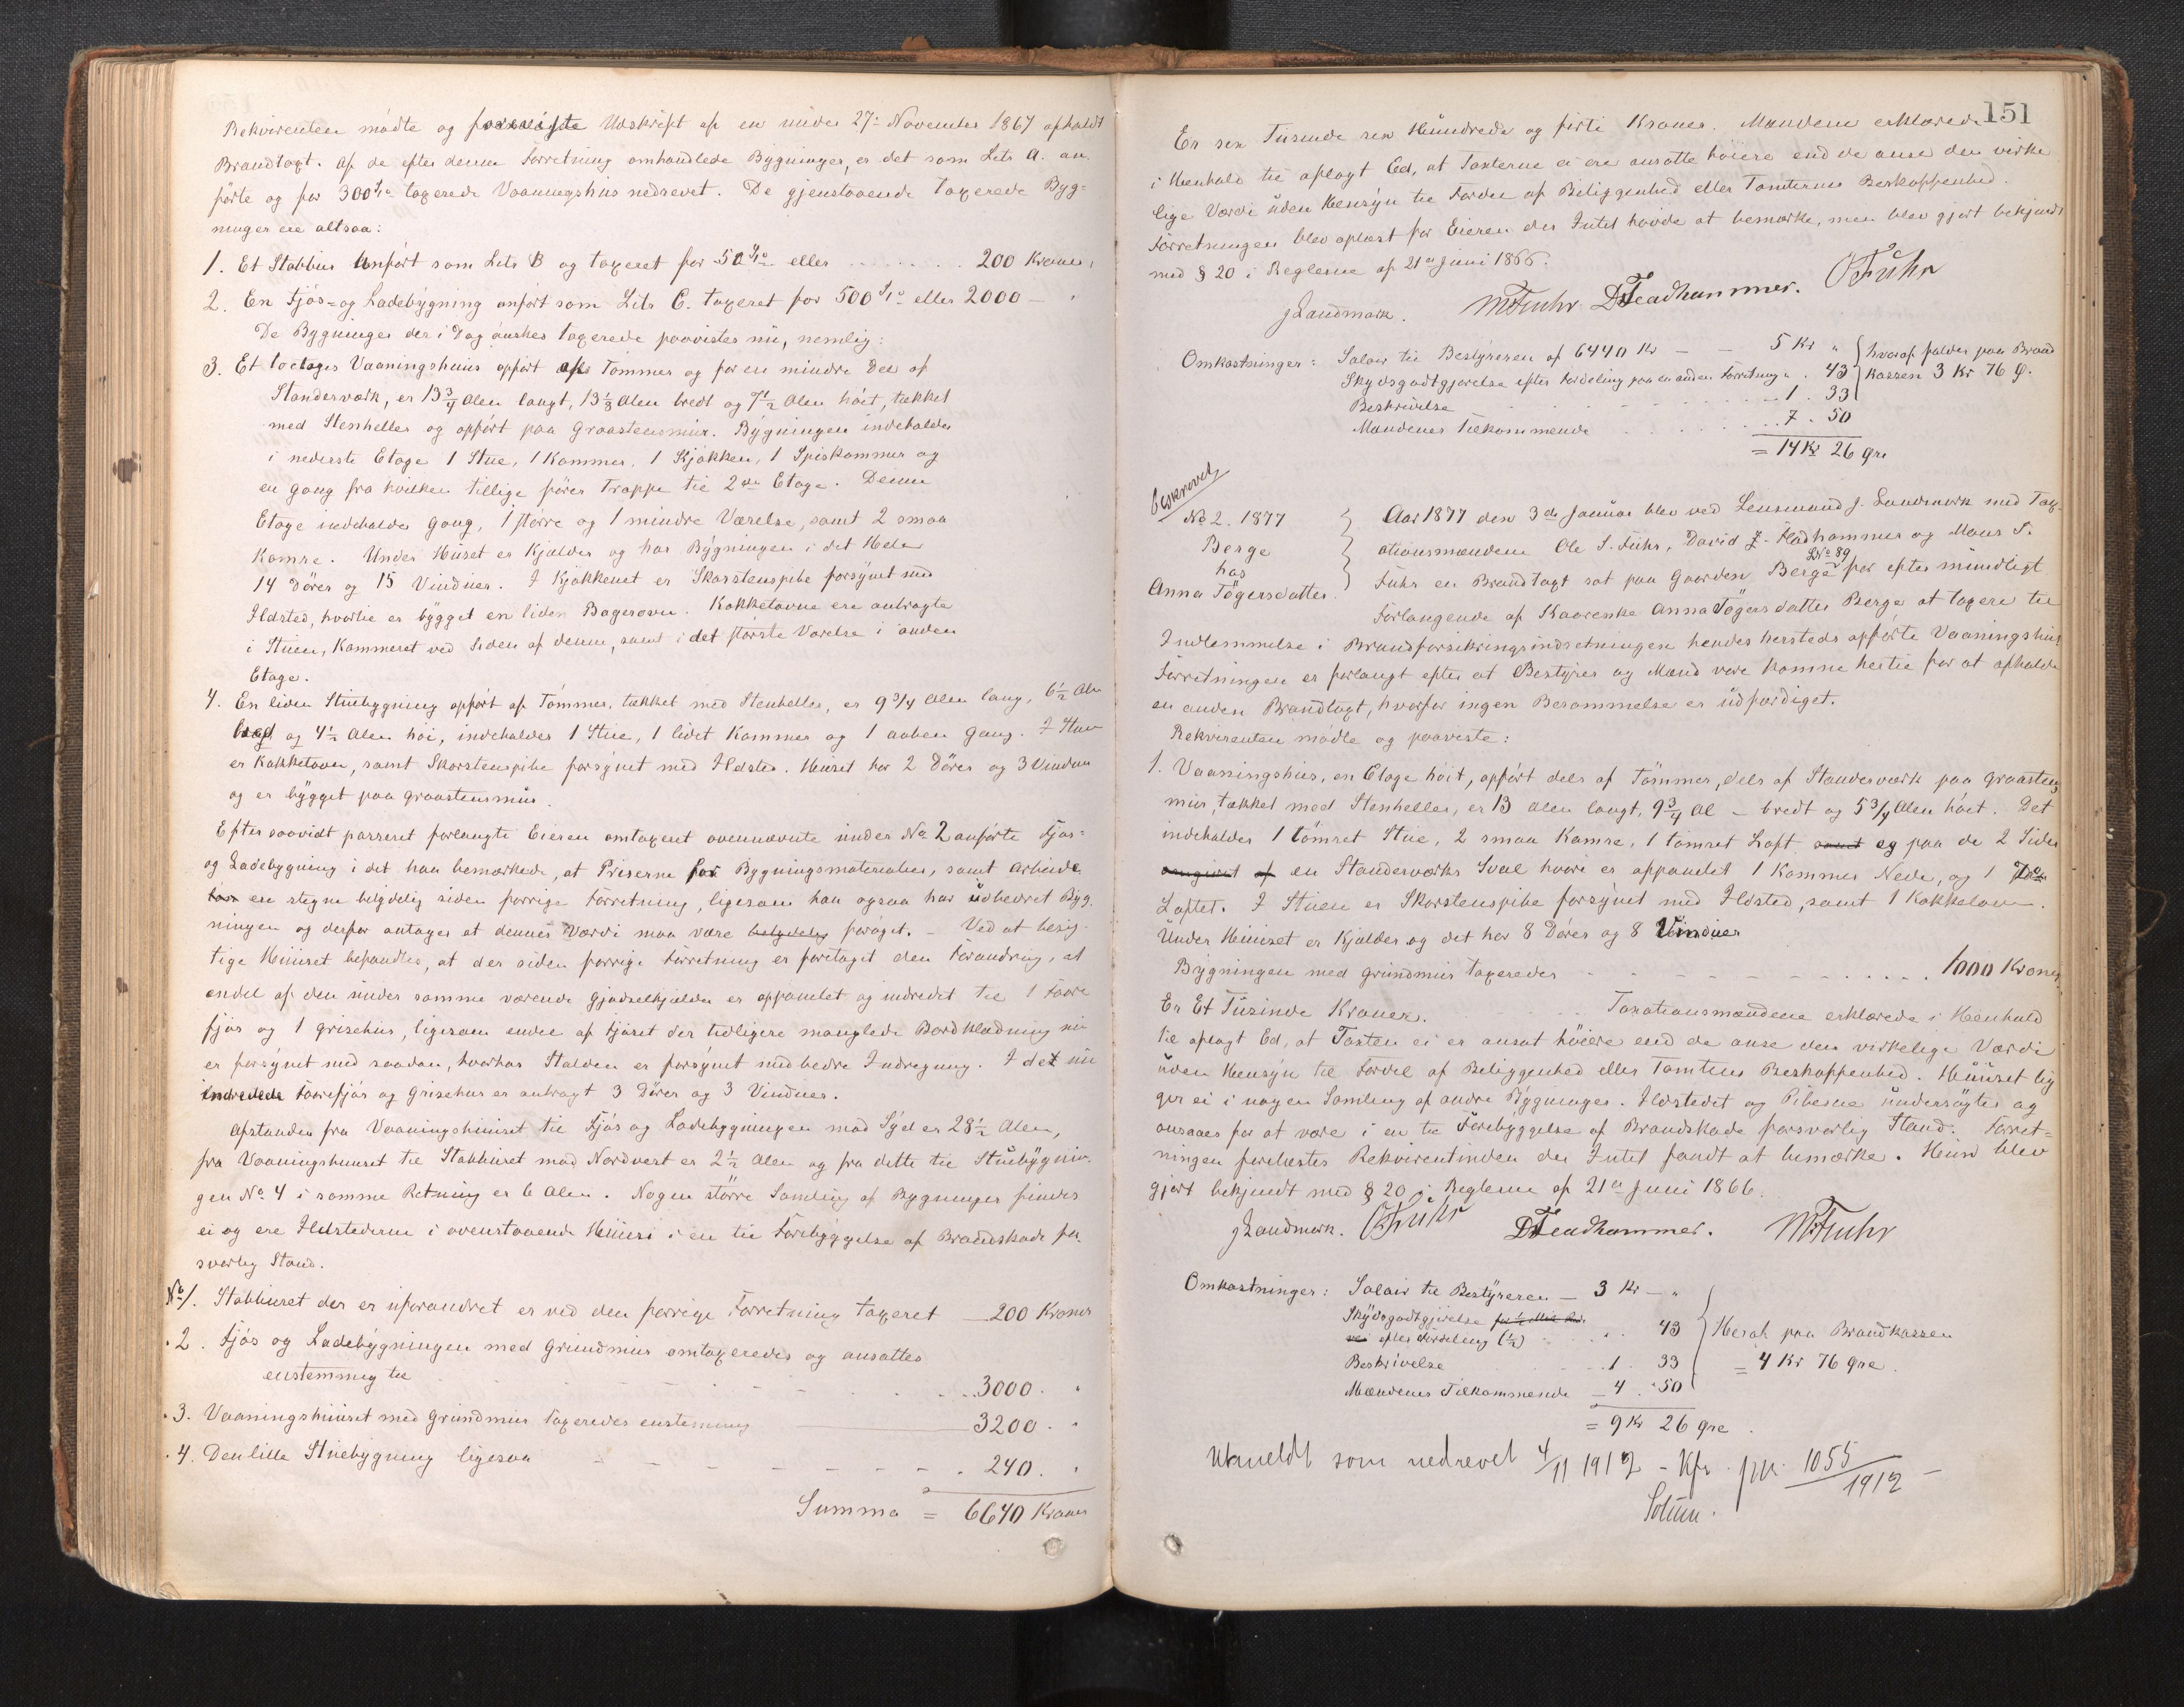 Rekvirenten mødte og foreviste Udskrift af en under 27de November 1867 afholdt
Brandtaxt. Af de efter denne Forretning omhandlede Bygninger, er det som Litr A. an-
førte og for 300 taxerede Vaaningshus nedrevet. De gjenstaaende taxerede Byg-
ninger ere altsaa:
1. Et Stabbur anført som Litr B og taxeret for 50 eller 200 Kroner,
2. En Fjøs- og Ladebygning anført som Litr C. taxeret for 500 eller 2000 — "
De Bygninger der i Dag ønskes taxerede paavistes nu, nemlig:
3. Et toetages Vaaningshuus opført af Tømmer og for en mindre Del af
Standerværk, er 13 3/4 Alen langt, 13 1/8 Alen bredt og 7 1/2 Alen høit, tækket
med Stenheller og opført paa Graastensmur. Bygningen indeholder
i nederste Etage 1 Stue, 1 Kammer, 1 Kjøkken, 1 Spiskammer og
en Gang fra hvilken tillige fører Trappe til 2den Etage. Denne
Etage indeholder Gang, 1 større og 1 mindre Værelse, samt 2 smaa
Kamre. Under Huset er Kjælder og har Bygningen i det Hele
14 Dører og 15 Vinduer. I Kjøkkenet er Skorstenspibe forsynet med
Ildsted, hvortil er bygget en liden Bagerovn. Kakkelovne ere anbragte
i Stuen, Kammeret ved Siden af denne, samt i det største Værelse i anden
Etage.
4. En liden Stuebygning opført af Tømmer, tækket med Stenheller, er 9 3/4 Alen lang, 6 1/2 Alen
bred og 4 1/2 Alen høi, indeholder 1 Stue, 1 lidet Kammer og 1 aaben Gang. I Stuen
er Kakkelovn, samt Skorstenspibe forsynet med Ildsted. Huset har 2 Dører og 3 Vinduer
og er bygget paa Graastensmur.
Efter saavidt passeret forlangte Eieren omtaxeret ovennævnte under No 2 anførte Fjøs-
og Ladebygning i det han bemærkede, at Priserne for Bygningsmaterialier, samt Arbeids-
løn ere stegne betydelig siden forrige Forretning, ligesom han ogsaa har udbedret Byg-
ningen og derfor antager at dennes Værdi maa være betydelig forøget. — Ved at besig-
tige Huuset befandtes, at der siden forrige Forretning er foretaget den Forandring, at
endel af den under samme værende Gjødselkjælder er oppanelet og indredet til 1 Faare
fjøs og 1 Grisehus, ligesom endel af Fjøset der tidligere manglede Bordklædning nu
er forsynet med saadan, hvorhos Stalden er forsynet med bedre Indregning. I det nu
indredede Faarefjøs og Grisehus er anbragt 3 Dører og 3 Vinduer.
Afstanden fra Vaaningshuuset til Fjøs og Ladebygningen mod Syd er 28 1/2 Alen,
fra Vaaningshuuset til Stabburet mod Nordvest er 2 1/2 Alen og fra dette til Stuebygnin-
gen No 4 i samme Retning er 6 Alen. Nogen større Samling af Bygninger findes
ei og ere Ildstederne i ovenstaaende Huuse i en til Forebyggelse af Brandskade for-
svarlig Stand.
No 1. Stabburet der er uforandret er ved den forrige Forretning taxeret — 200 Kroner
" 2. Fjøs og Ladebygningen med Grundmur omtaxeredes og ansattes
enstemmig til 3000. "
" 3. Vaaningshuuset med Grundmur taxeredes enstemmig 3200. "
" 4. Den lille Stuebygning ligesaa 240. "
Summa = 6640 Kroner
151
Er sex Tusende sex Hundrede og firti Kroner. Mændene erklærede
i Henhold til aflagt Ed, at Taxterne ei ere ansatte høiere end de anse den virke
lige Værdi uden Hensyn til Fordel af Beliggenhed eller Tomternes Beskaffenhed.
Forretningen blev oplæst for Eieren der Intet havde at bemærke, men blev gjort bekjendt
med § 20 i Reglerne af 21de Juni 1866.
J Landmark. MSFuhr DFladhammer. OSFuhr
Omkostninger: Salair til Bestyreren af 6440 Kr — — 5 Kr "
Skydsgodtgjørelse efter Fordeling paa en anden Forretning " . 43
Beskrivelse 1 . 33
Mændenes Tilkommende 7 . 50
= 14 Kr 26 Øre
hvoraf falder paa Brand
kassen 3 Kr 76 Ø.
Beskrevet
No 2. 1877
Berge
hos
Anna Tøgersdatter.
Aar 1877 den 3die Januar blev ved Lensmand J. Landmark med Tax-
ationsmændene Ole S. Fuhr, David J. Fladhammer og Mons S.
Fuhr en Brandtaxt sat paa Gaarden Berge LNo 89 for efter mundligt
Forlangende af Kaarenke Anna Tøgersdatter Berge at taxere til
Indlemmelse i Brandforsikringsindretningen hendes hersteds opførte Vaaningshus.
Forretningen er forlangt efter at Bestyrer og Mænd vare komne hertil for at afholde
en anden Brandtaxt, hvorfor ingen Berammelse er udfærdiget.
Rekvirenten mødte og paaviste:
1. Vaaningshus, en Etage høit, opført dels af Tømmer, dels af Standerværk paa Graastens
mur, tækket med Stenheller, er 13 Alen langt, 9 3/4 Al — bredt og 5 3/4 Alen høit. Det
indeholder 1 tømret Stue, 2 smaa Kamre, 1 tømret Loft samt og paa de 2 Sider
omgivet af en Standerværks Sval hvori er oppanelet 1 Kammer Nede, og 1 paa
Loftet. I Stuen er Skorstenspibe forsynet med Ildsted, samt 1 Kakkelovn.
Under Huuset er Kjælder og det har 8 Dører og 8 Vinduer
Bygningen med Grundmur taxeredes 1000 Kroner.
Er Et Tusinde Kroner. Taxationsmændene erklærede i Henhold
til aflagt Ed, at Taxten ei er ansat høiere end de anse den virkelige Værdi
uden Hensyn til Fordel af Beliggenhed eller Tomtens Beskaffenhed. Huuset lig
ger ei i nogen Samling af andre Bygninger. Ildstedet og Piberne undersøgtes og
ansaaes for at være i en til Forebyggelse af Brandskade forsvarlig Stand. Forret-
ningen forelæstes Rekvirentinden der Intet fandt at bemærke. Hun blev
gjort bekjendt med § 20 i Reglerne af 21de Juni 1866.
J Landmark. OSFuhr DFladhammer. MSFuhr
Omkostninger: Salair til Bestyreren — 3 Kr — "
Skydsgodtgjørelse
efter Fordeling (1/2) " . 43
Beskrivelse 1 . 33
Mændenes Tilkommende — 4 . 50
= 9 Kr 26 Øre.
Heraf paa Brandkassen
= 4 Kr 76 Øre.
Utmeldt som nedrevet 4/11 1912 - Kfr. 1055/1912 —